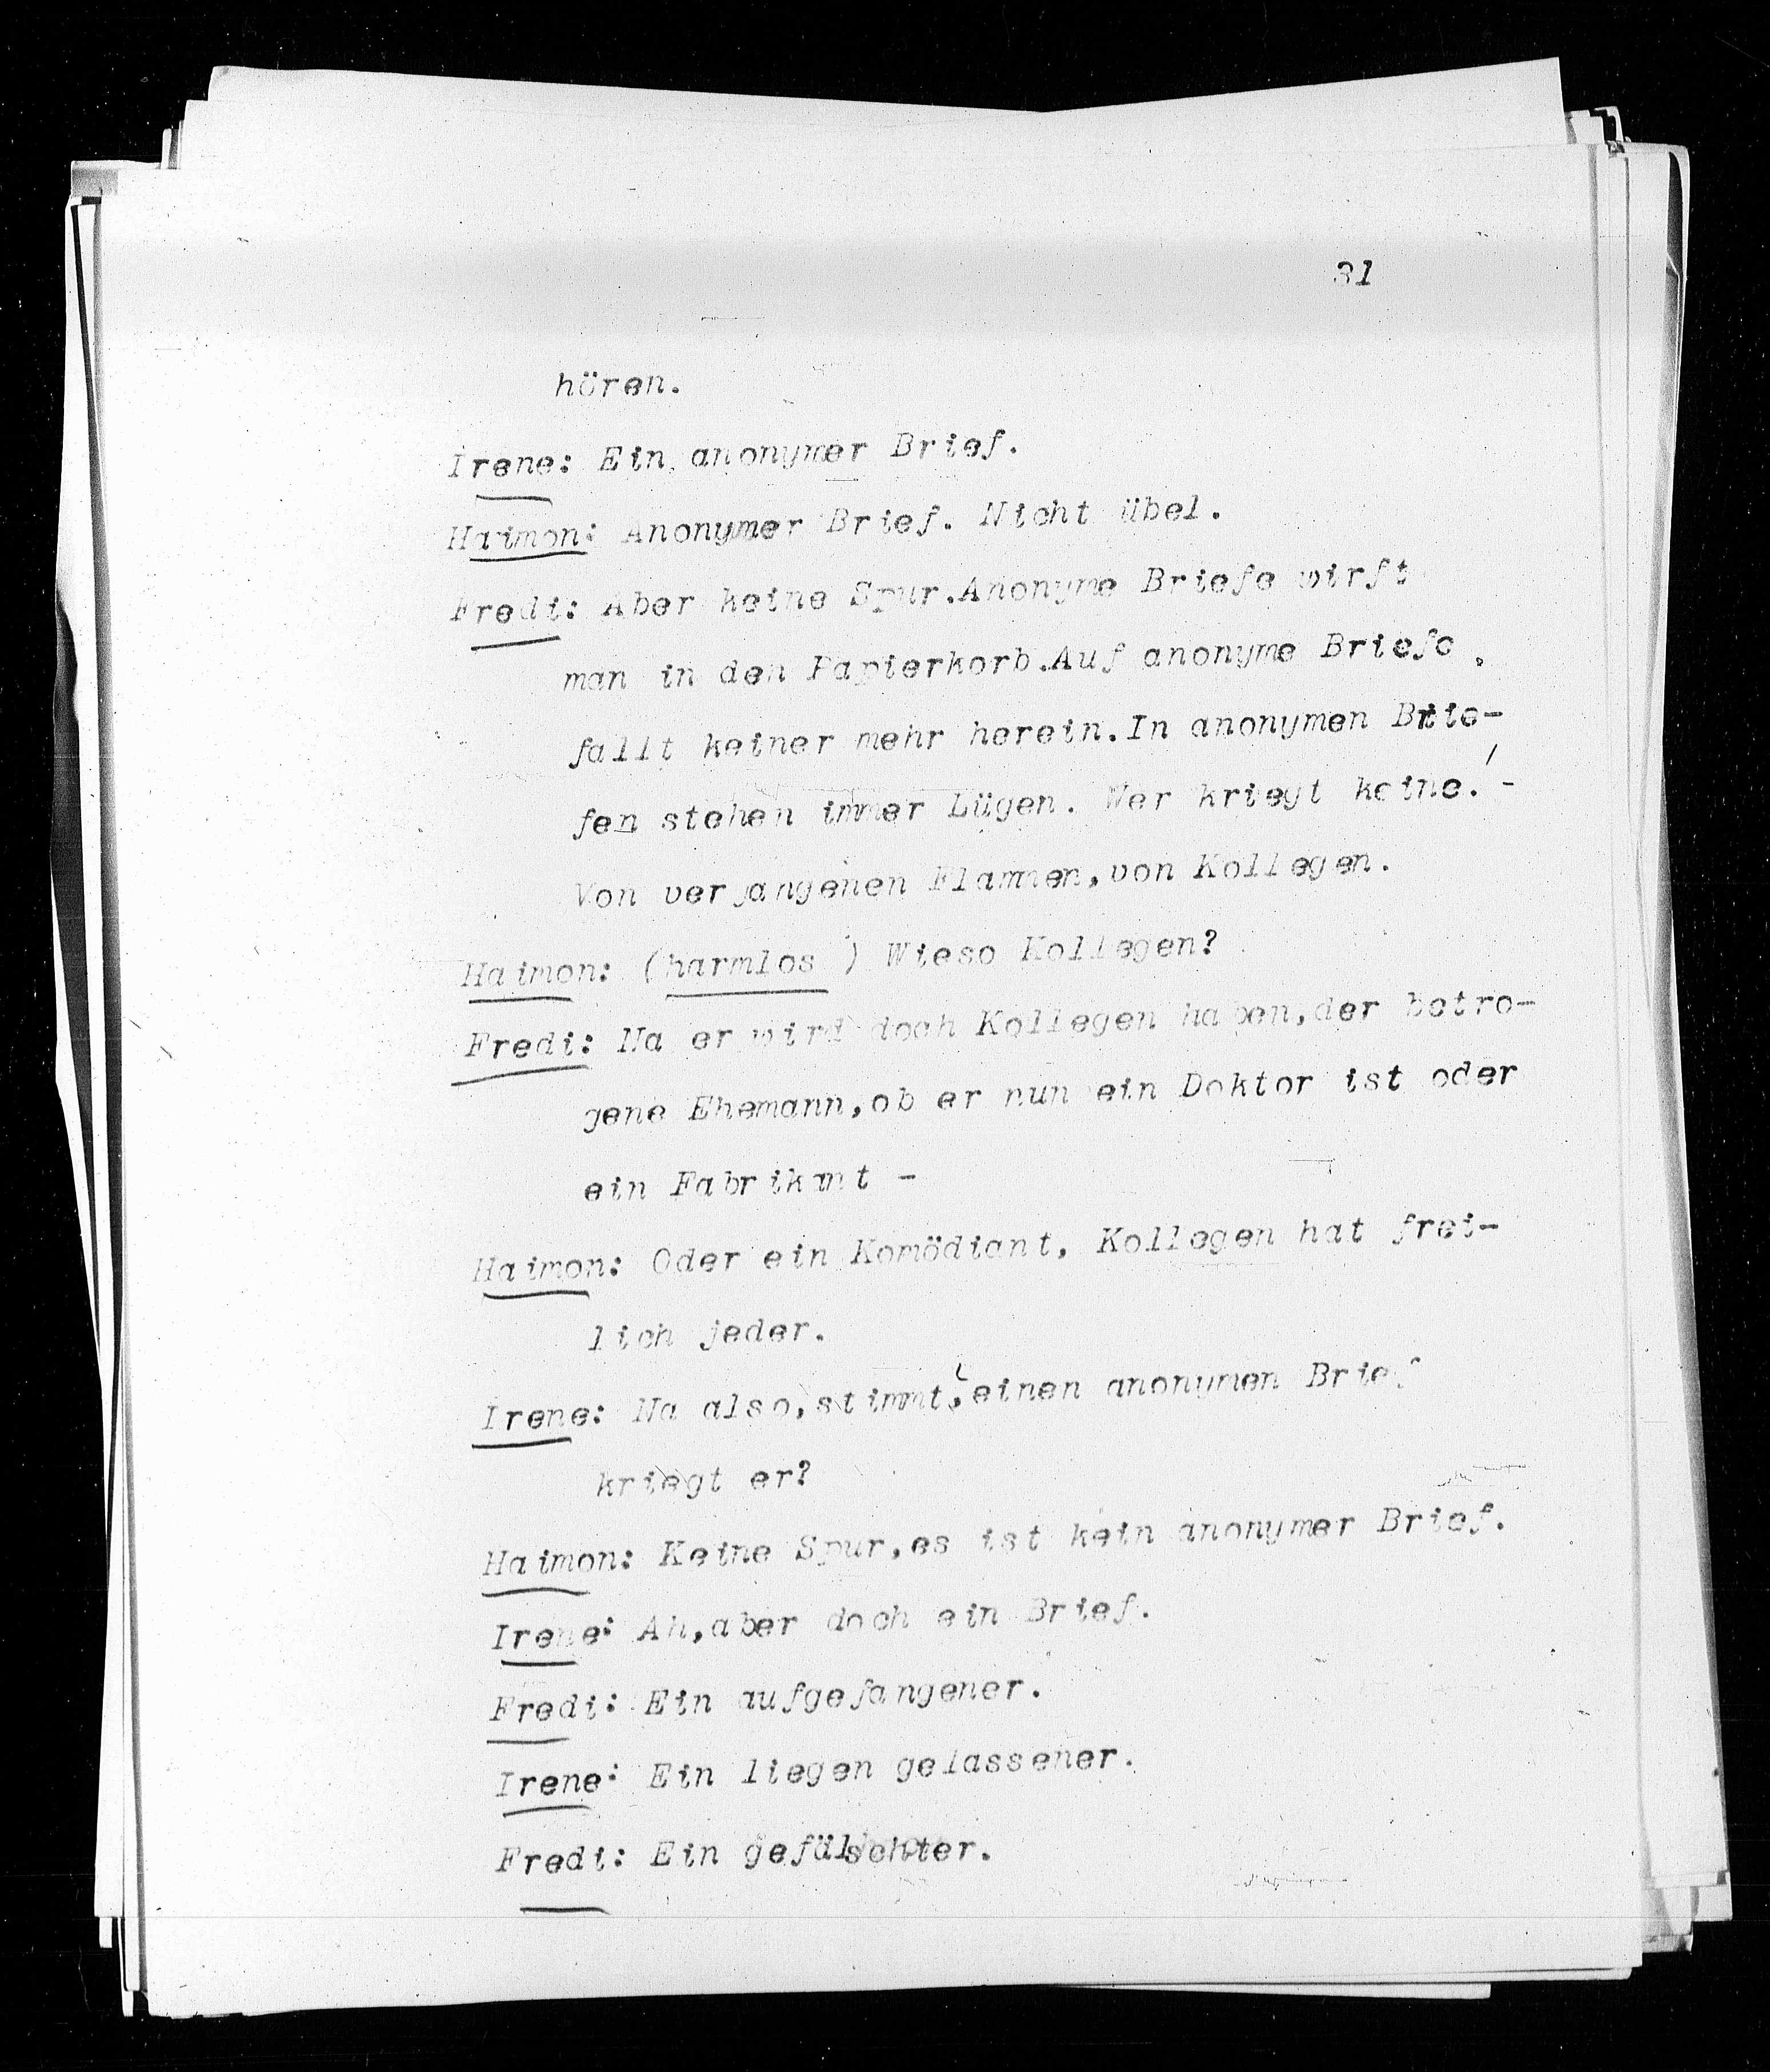 31
hören.
Irene: Ein anonymer Brief.
Haimon: Anonymer Brief. Nicht übel.
Fredi: Aber keine Spur.Anonyme Briefe wirft
man in den Papierkorb.Auf anonyme Briefe
fallt keiner mehr herein.In anonymen Brie-
fen stehen immer Lügen. Wer kriegt keine! -
Von vergangenen Flammen,von Kollegen.
Haimon: (harmlos ) Wieso Kollegen?
Fredi: Na er wird doch Kollegen haben,der betro-
gene Ehemann,ob er nun ein Doktor ist oder
ein Fabrikant -
Haimon: Oder ein Komödiant, Kollegen hat frei-
lich jeder.
Irene: Na also,stimmt,einen anonymen Brief
kriegt er?
Haimon: Keine Spur,es ist kein anonymer Brief.
Irene: Ah,aber doch ein Brief.
Fredi: Ein aufgefangener.
Irene: Ein liegen gelassener.
Fredi: Ein gefälschter.